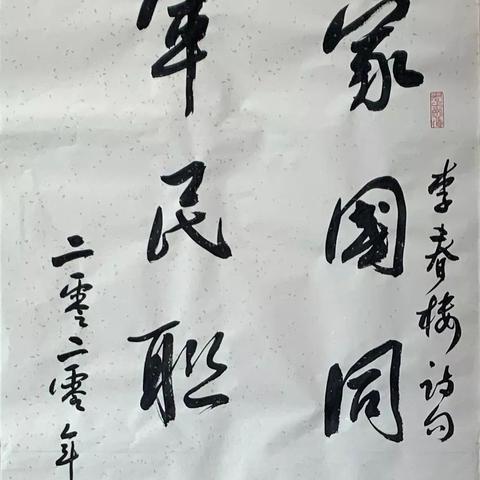 李春诗句
家國同
軍民联
二零二零年